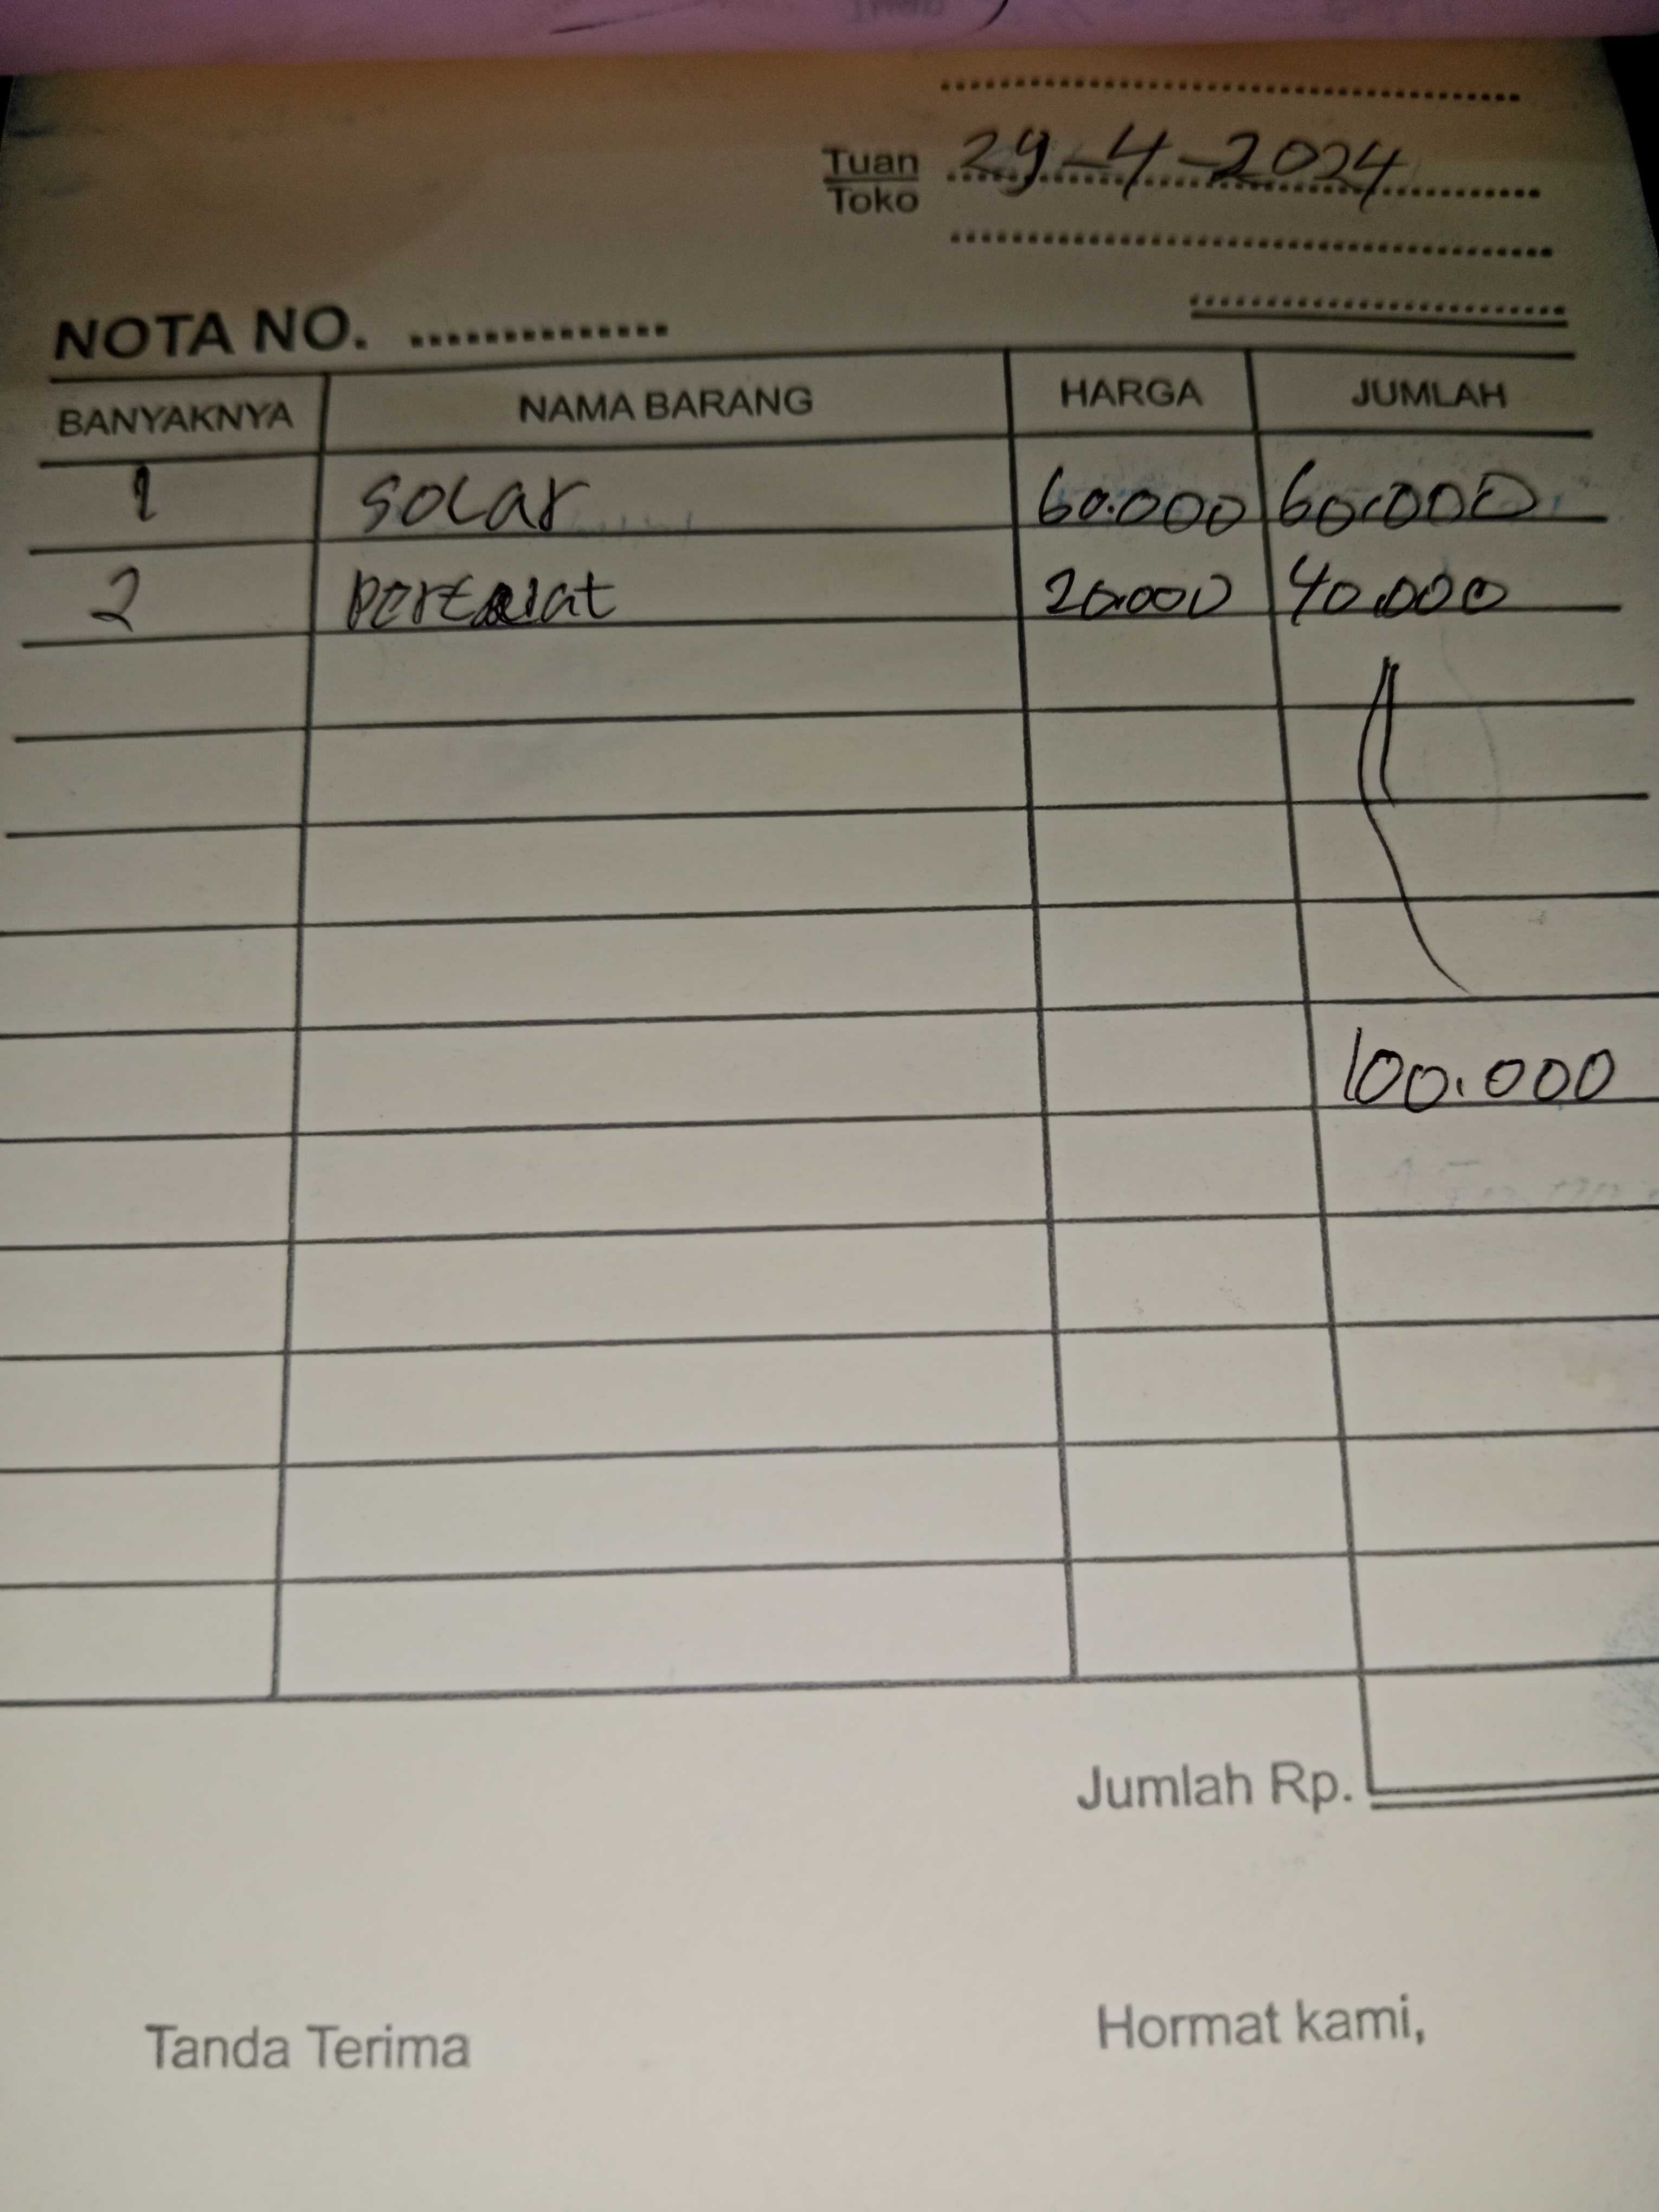 Tuan 29-4-2024
Toko
NOTA NO. ..............
BANYAKNYA NAMA BARANG HARGA JUMLAH
1 solar 60.000 60.000
2 pertalat 20.000 40.000
100.000
Jumlah Rp.
Tanda Terima Hormat kami,